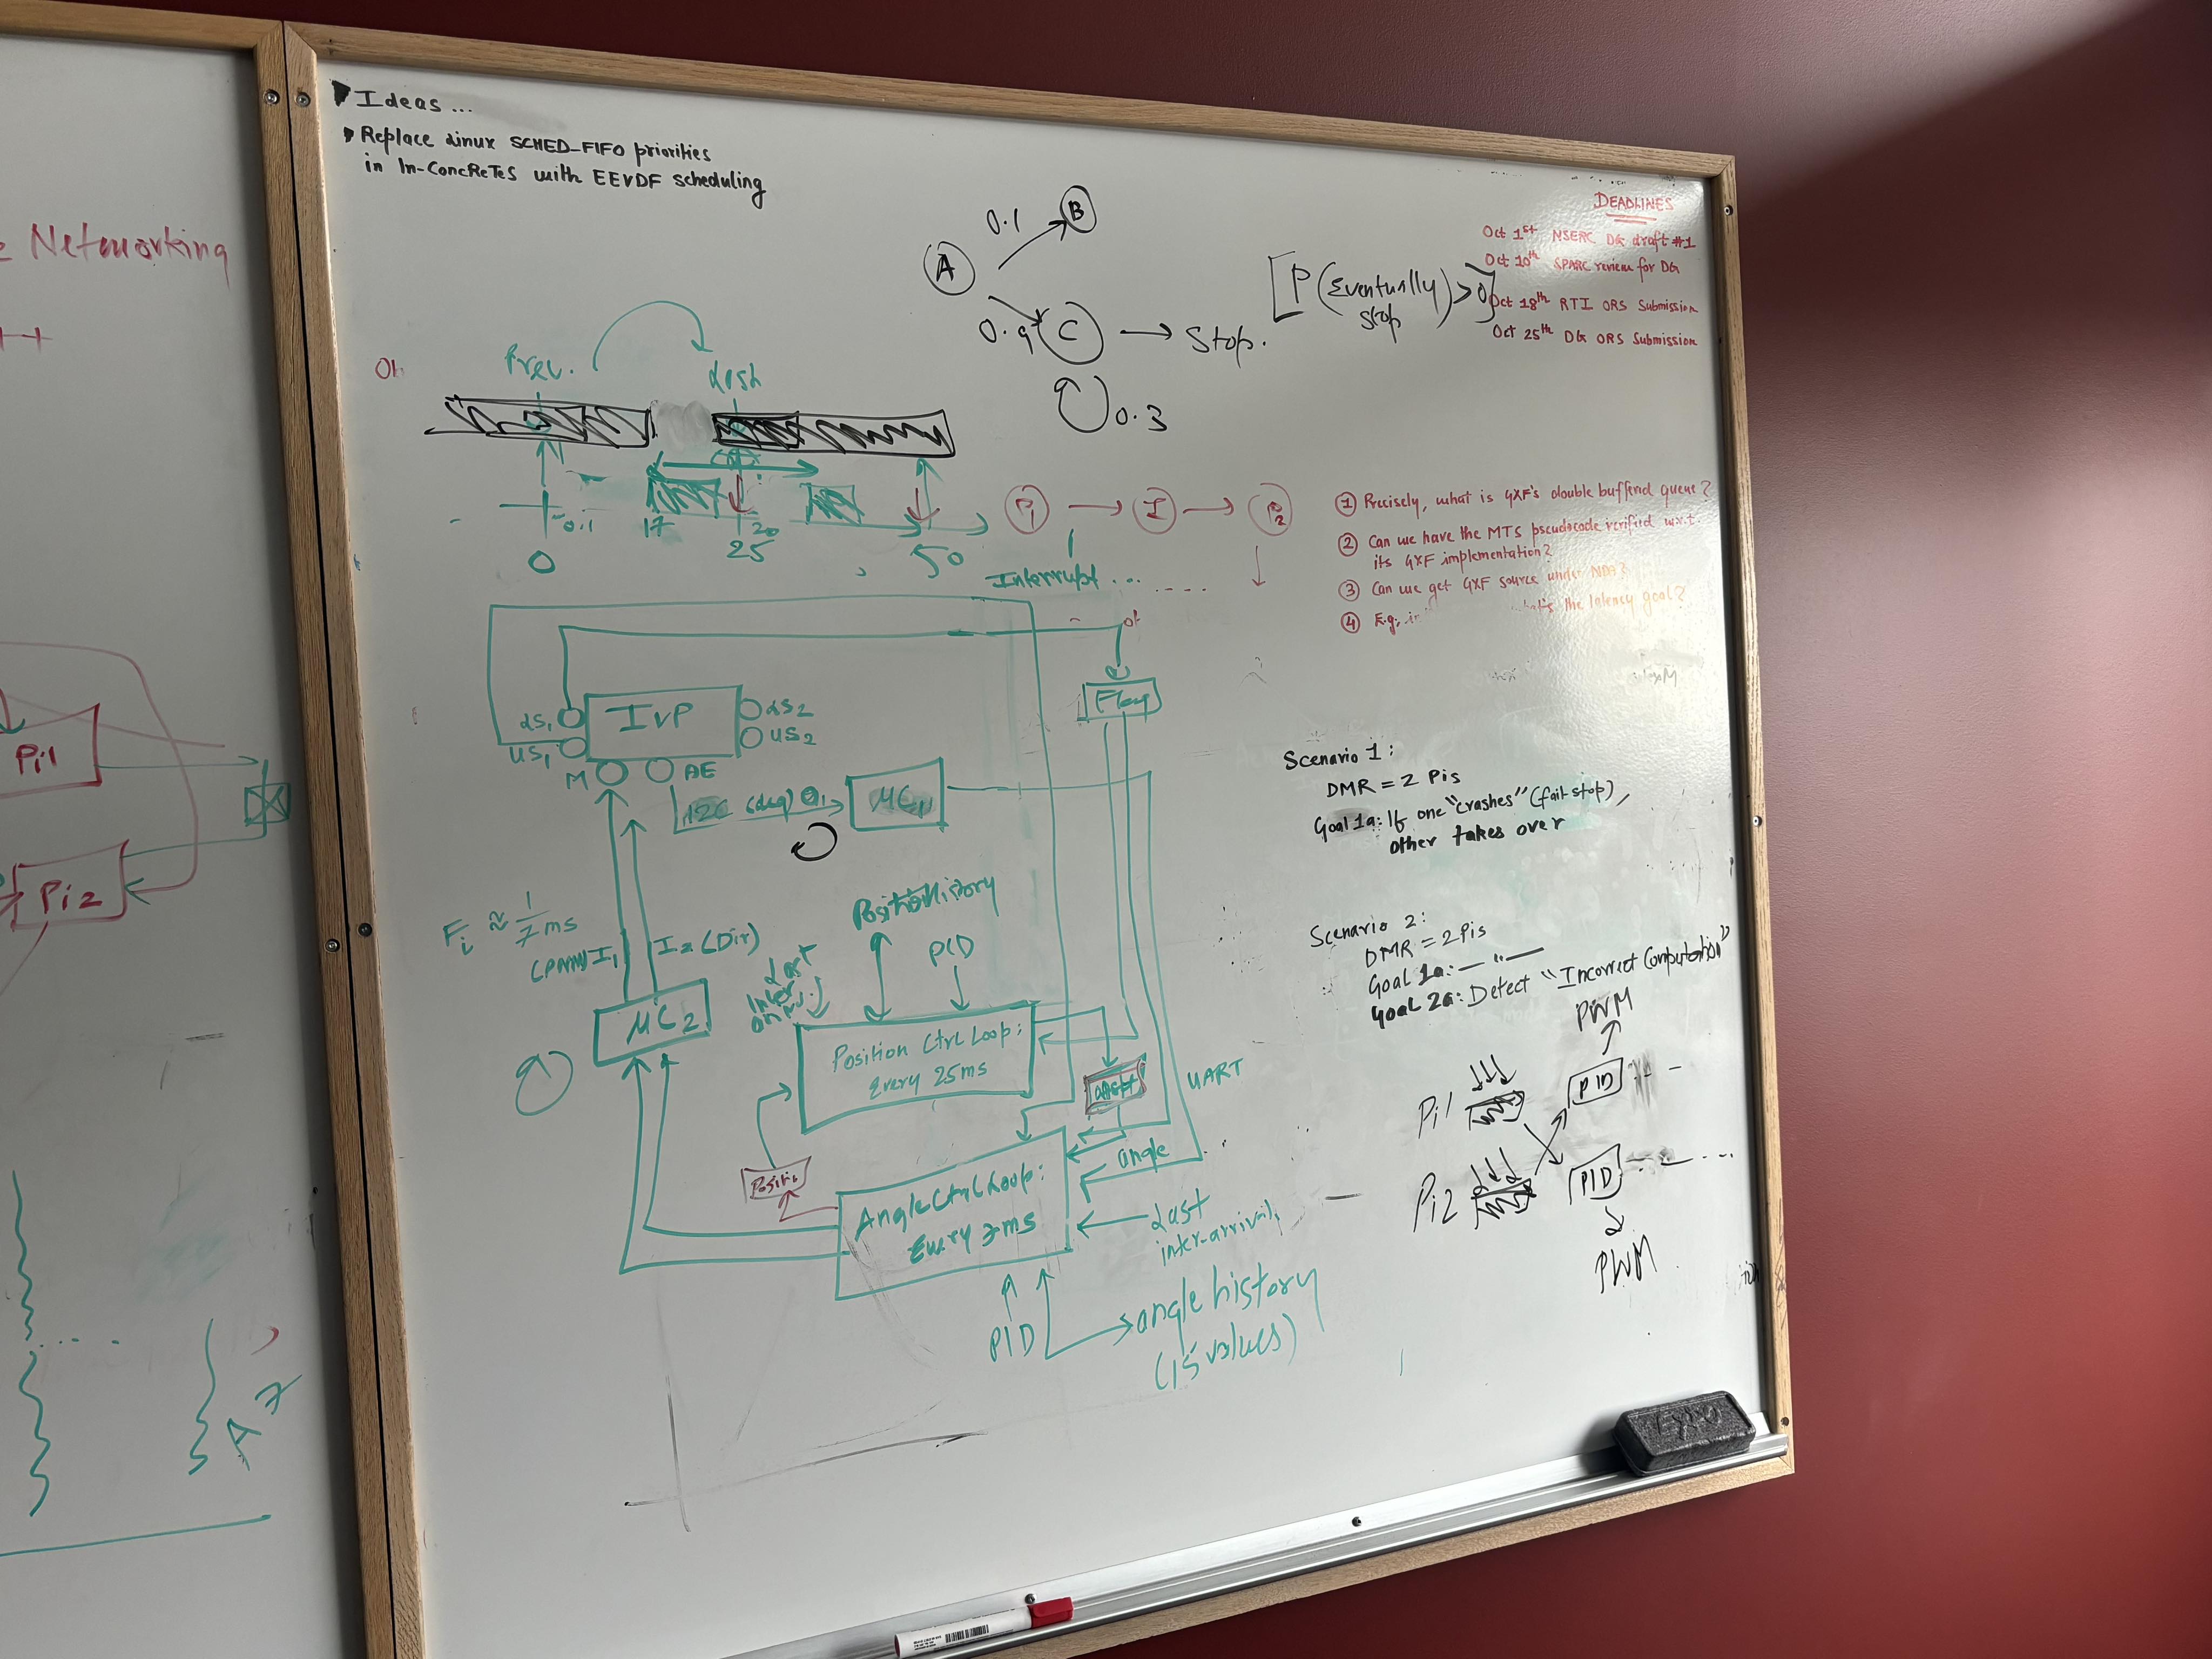 Ideas...
Replace Linux SCHED_FIFO priorities
in In-ConcReTeS with EEVDF scheduling
e Networking
++
Pi1
Pi2
A 7
DEADLINES
Oct 1st NSERC DG draft #1
Oct 10th SPARC review for DG
Oct 18th RTI ORS Submission
Oct 25th DG ORS Submission
A
0.1
B
0.9
C
Stop.
0.3
[P(Eventually stop) > 0]
Prev.
-0.1
17
20
0
25
50
P1
I
P2
Interrupt ...
① Precisely, what is GXF's double buffered queue?
② Can we have the MTS pseudocode verified w.r.t.
its GXF implementation?
③ Can we get GXF source under NDA?
④ E.g., in
what's the latency goal?
LS1
US1
IVP
LS2
US2
M
AE
Flag
I2C (deg) θ1
μC1
Fi ≈ 1/7ms
(PWM) I1
I2 (Dir)
μC2
Position History
PID
Last
Position Ctrl Loop:
Every 25ms
UART
Positi
angle
Angle Ctrl Loop:
Every 7ms
Last
inter-arrival
PID
angle history
(15 values)
Scenario 1:
DMR = 2 Pis
Goal 1a: If one "crashes" (fail stop),
other takes over
Scenario 2:
DMR = 2 Pis
Goal 1a: — " —
Goal 2a: Detect "Incorrect Computation"
PWM
Pi1
PID
Pi2
PID
PWM